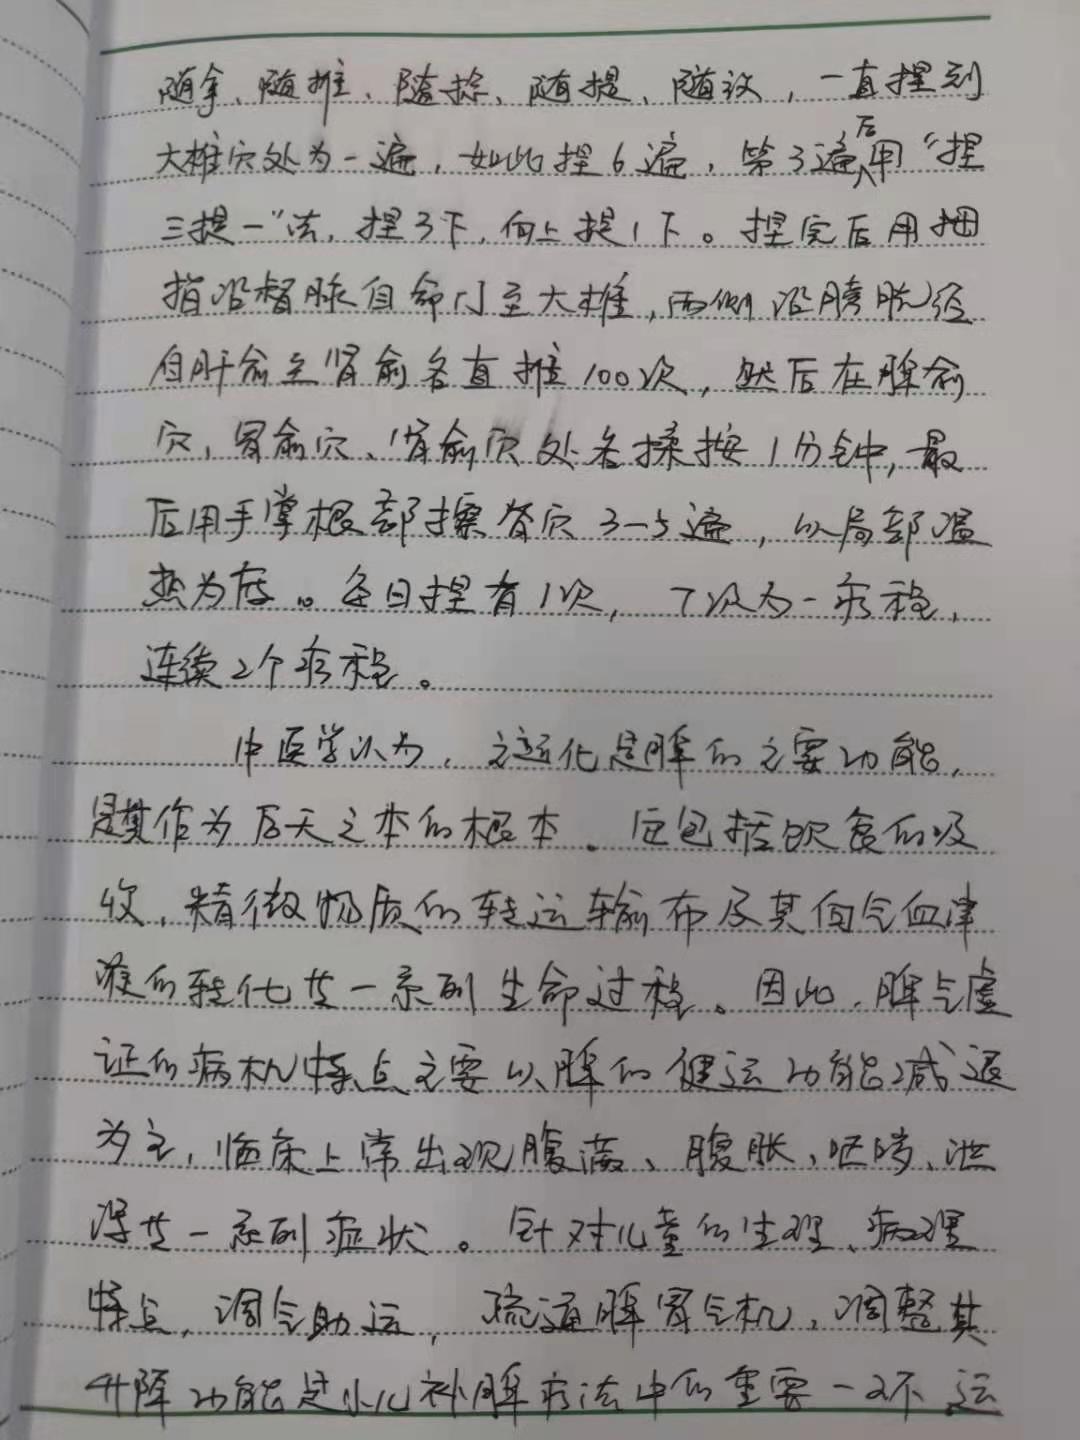 随拿、随推、随捻、随提、随放，一直捏到
大椎穴处为一遍，如此捏6遍，第3遍后用“捏
三提一”法，捏3下，向上提1下。捏完后用拇
指沿督脉自命门至大椎，两侧沿膀胱经
自肝俞至肾俞各直推100次，然后在脾俞
穴，胃俞穴、肾俞穴处各揉按1分钟，最
后用手掌根部擦脊穴3-5遍，以局部温
热为度。每日捏脊1次，7次为一疗程，
连续2个疗程。
中医学认为，主运化是脾的主要功能，
是其作为后天之本的根本。它包括饮食的吸
收，精微物质的转运输布及其向气血津
液的转化等一系列生命过程。因此，脾气虚
证的病机特点主要以脾的健运功能减退
为主，临床上常出现腹满、腹胀、呕哕、泄
泻等一系列症状。针对儿童的生理、病理
特点，调气助运，疏通脾胃气机，调整其
升降功能是小儿补脾疗法中的重要一环 运